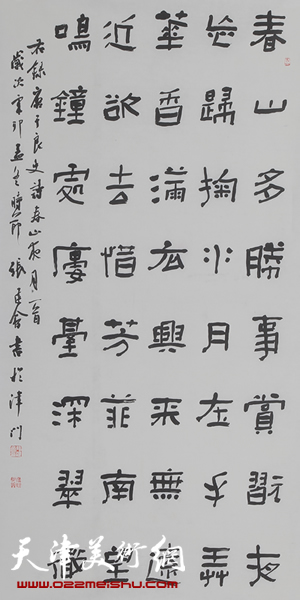 春山多勝事賞翫夜
忘歸掬水月在手弄
華香滿衣興來無遠
近欲去惜芳菲南望
鳴鐘處樓臺深翠微
右錄唐于良史詩春山夜月一首
歲次辛卯孟冬 張建會書於津門
天津美術網
www.022meishu.com